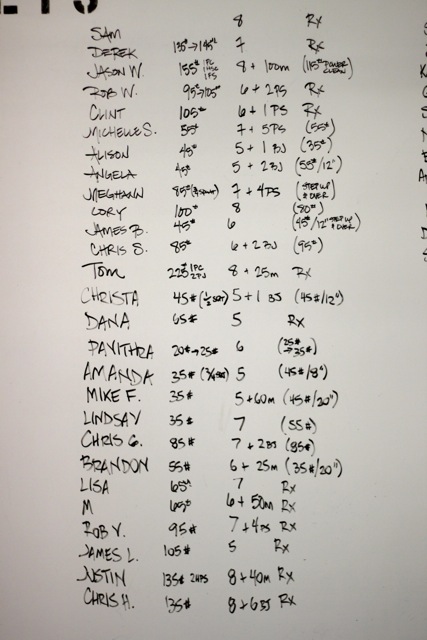 SAM 8 Rx
DEREK 135#→145# 7 Rx
JASON W. 155# 1PC 1HSC 1FS 8 + 100m (115# POWER CLEAN)
ROB W. 95#→105# 6 + 2PS Rx
CLINT 105# 6 + 1PS Rx
MICHELLE S. 55# 7 + 5PS (55#)
ALISON 45# 5 + 1BJ (35#)
ANGELA 45# 5 + 2BJ (55#/12")
MEGHANN 85# 7 + 4PS (STEP UP & OVER)
CORY 100# 8 (80#)
JAMES B. 45# 6 (45#/12" STEP UP & OVER)
CHRIS S. 85# 6 + 2BJ (95#)
TOM 225# 1PC 2PJ 8 + 25m Rx
CHRISTA 45# (1/2 SQT) 5 + 1BJ (45#/12")
DANA 65# 5 Rx
PAVITHRA 20#→25# 6 (25#→35#)
AMANDA 35# (3/4 SQT) 5 (45#/8")
MIKE F. 35# 5 + 60m (45#/20")
LINDSAY 35# 7 (55#)
CHRIS G. 85# 7 + 2BJ (95#)
BRANDON 55# 6 + 25m (35#/20")
LISA 65# 7 Rx
M 65# 6 + 50m Rx
ROB V. 95# 7 + 4PS Rx
JAMES L. 105# 5 Rx
JUSTIN 135# 2HPS 8 + 40m Rx
CHRIS H. 135# 8 + 6BJ Rx